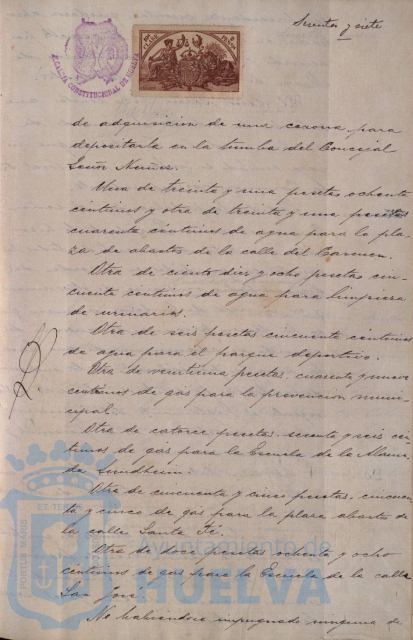 Sesenta y siete
ALCALDIA CONSTITUCIONAL DE HUELVA
de adquisicion de una corona para
depositarla en la tumba del Concejal
Señor Nuñez.
Una de treinta y una pesetas ochenta
centimos y otra de treinta y una pesetas
cuarenta centimos de agua para la pla-
za de abastos de la calle del Carmen.
Otra de ciento diez y ocho pesetas cin-
cuenta centimos de agua para limpieza
de urinarios.
Otra de seis pesetas cincuenta centimos
de agua para el parque deportivo.
Otra de veintiuna pesetas cuarenta y nueve
centimos de gas para la prevencion muni-
cipal.
Otra de catorce pesetas setenta y seis cen-
timos de gas para la Escuela de la Alame-
da Sundheim.
Otra de cincuenta y cinco pesetas cincuen-
ta y cinco de gas para la plaza abastos de
la calle Santa Fé.
Otra de doce pesetas ochenta y ocho
centimos de gas para la Escuela de la calle
San José.
No habiendose impugnado ninguna de
PORTUS MARIS
Ayuntamiento de
HUELVA